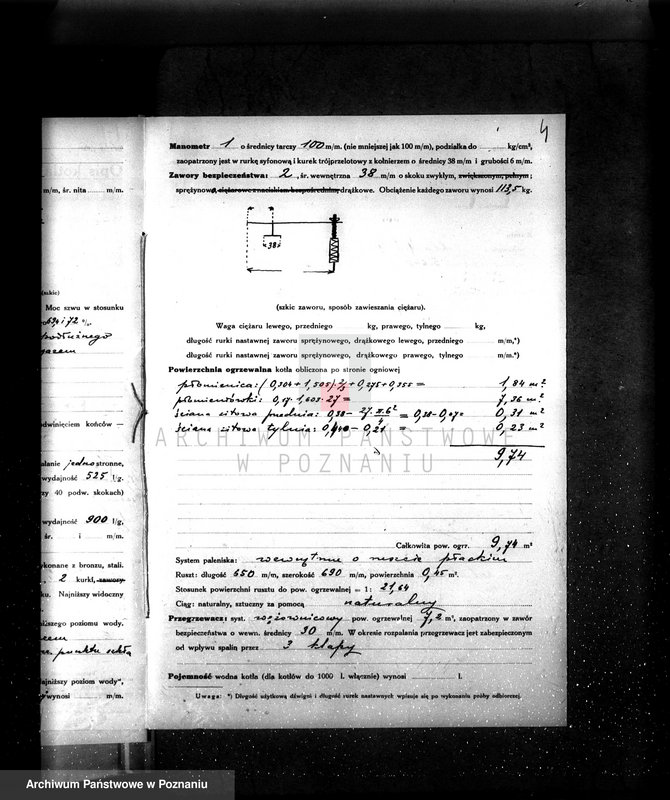 4
Manometr 1 o średnicy tarczy 100 m/m. (nie mniejszej jak 100 m/m), podziałka do kg/cm²,
zaopatrzony jest w rurkę syfonową i kurek trójprzelotowy z kołnierzem o średnicy 38 m/m i grubości 6 m/m.
Zawory bezpieczeństwa: 2, śr. wewnętrzna 38 m/m o skoku zwykłym, zwiększonym, pełnym;
sprężynowe, ciężarowe z naciskiem bezpośrednim, drążkowe. Obciążenie każdego zaworu wynosi 113,5 kg.
38
(szkic zaworu, sposób zawieszania ciężaru).
Waga ciężaru lewego, przedniego kg, prawego, tylnego kg,
długość rurki nastawnej zaworu sprężynowego, drążkowego lewego, przedniego m/m,*)
długość rurki nastawnej zaworu sprężynowego, drążkowego prawego, tylnego m/m.*)
Powierzchnia ogrzewalna kotła obliczona po stronie ogniowej
płomienica: (0,304 + 1,505) 2/3 + 0,275 + 0,355 = 1,84 m²
płomieniówki: 0,17 · 1,603 · 27 = 7,36 m²
ściana sitowa przednia: 0,38 − = 0,38 − 0,07 = 0,31 m²
ściana sitowa tylnia: 0,440 − 0,21 = 0,23 m²
9,74
ARCHIWUM PAŃSTWOWE
W POZNANIU
Całkowita pow. ogrz. 9,74 m²
System paleniska: wewnętrzne o ruszcie płaskim
Ruszt: długość 650 m/m, szerokość 690 m/m, powierzchnia 0,45 m².
Stosunek powierzchni rusztu do pow. ogrzewalnej = 1: 21,64
Ciąg: naturalny, sztuczny za pomocą naturalny
Przegrzewacz: syst. wężownicowy pow. ogrzewalnej 4,2 m², zaopatrzony w zawór
bezpieczeństwa o wewn. średnicy 30 m/m. W okresie rozpalania przegrzewacz jest zabezpieczony
od wpływu spalin przez 3 klapy
Pojemność wodna kotła (dla kotłów do 1000 l. włącznie) wynosi l.
Uwaga: *) Długość użytkową dźwigni i długość rurek nastawnych wpisuje się po wykonaniu próby odbiorczej.
m/m, śr. nita m/m.
(szkic)
Moc szwu w stosunku
i 72 %
podłużnego
odwinięciem końców —
jednostronne,
wydajność 525 l/g.
zy 40 podw. skokach)
wydajność 900 l/g,
śr. i m/m.
konane z bronzu, stali.
2 kurki, zawory
ku. Najniższy widoczny
niższego poziomu wody.
punktu szkła
ajniższy poziom wody",
wynosi m/m.
Archiwum Państwowe w Poznaniu